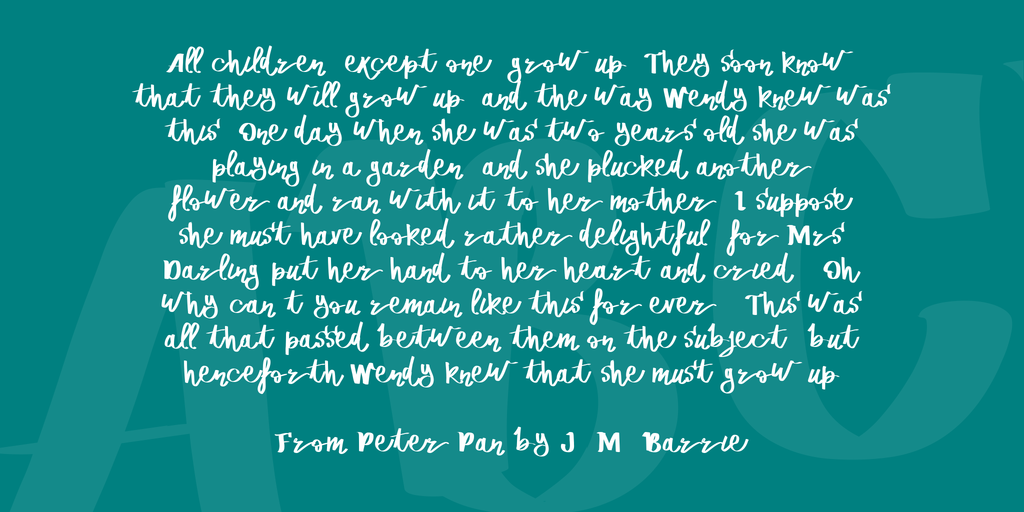 All children except one grow up They soon know
that they will grow up and the way Wendy knew was
this One day when she was two years old she was
playing in a garden and she plucked another
flower and ran with it to her mother I suppose
she must have looked rather delightful for Mrs
Darling put her hand to her heart and cried Oh
why can t you remain like this for ever This was
all that passed between them on the subject but
henceforth Wendy knew that she must grow up
From Peter Pan by J M Barrie
ABC